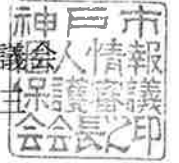 神戸市
個人情報
保護審議
会会長之印
議会